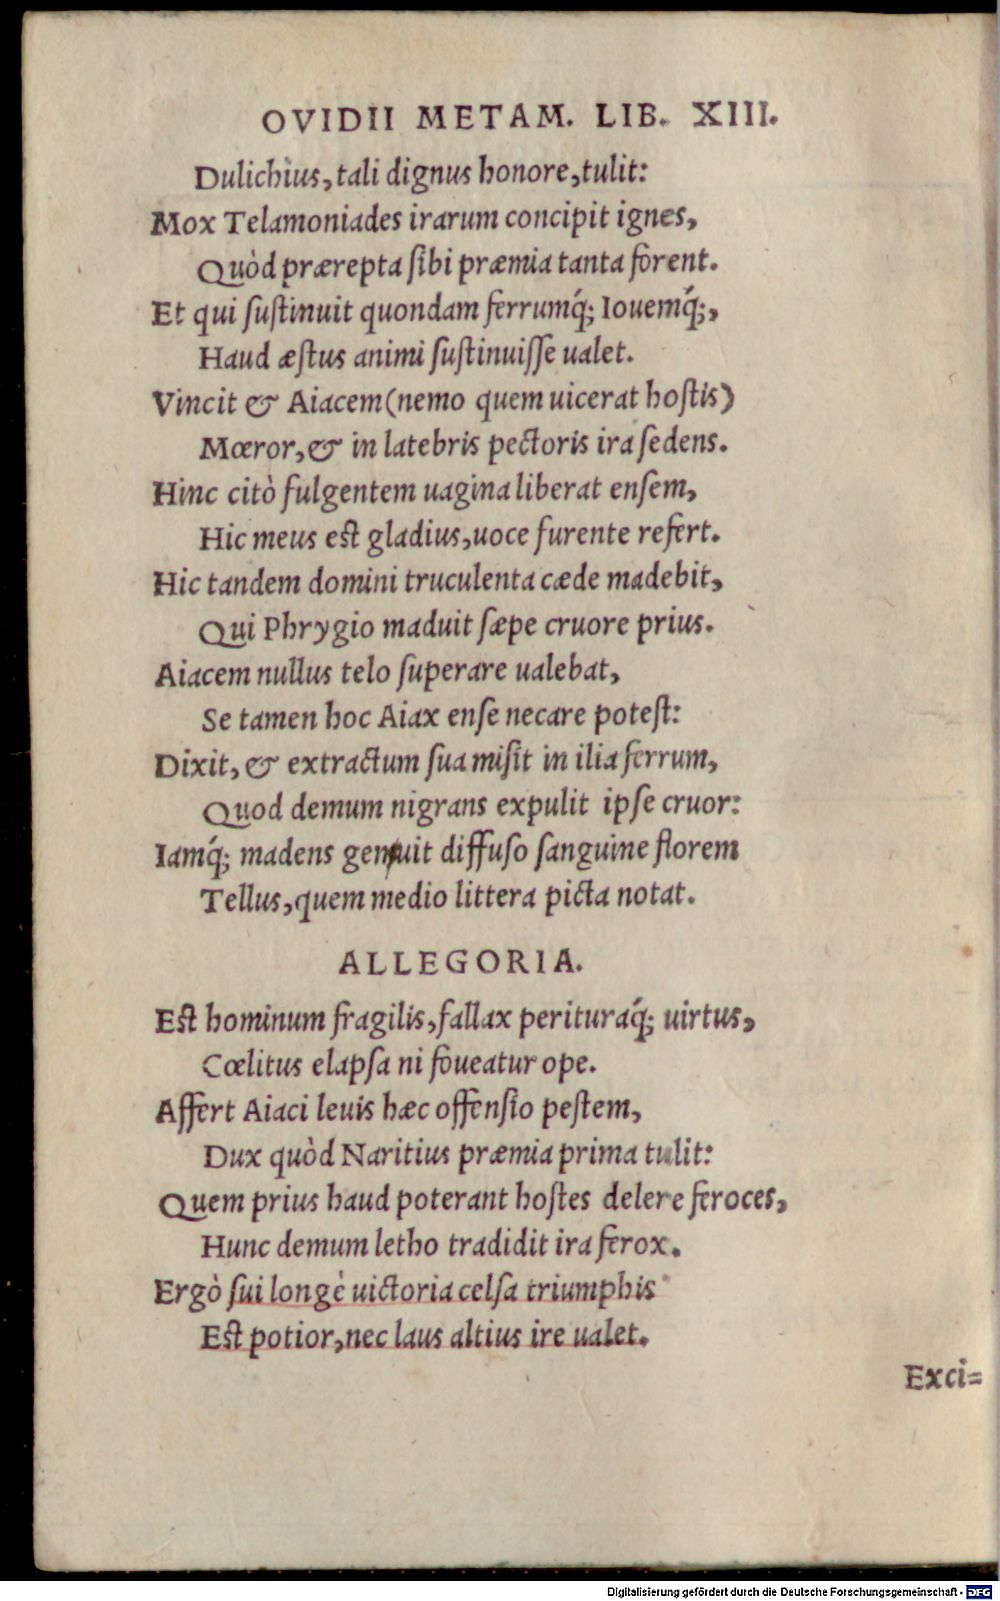 OVIDII METAM. LIB. XIII.
Dulichius, tali dignus honore, tulit:
Mox Telamoniades irarum concipit ignes,
Quòd prærepta sibi præmia tanta forent.
Et qui sustinuit quondam ferrumq́; Iouemq́;,
Haud æstus animi sustinuisse ualet.
Vincit & Aiacem (nemo quem uicerat hostis)
Mœror, & in latebris pectoris ira sedens.
Hinc citò fulgentem uagina liberat ensem,
Hic meus est gladius, uoce furente refert.
Hic tandem domini truculenta cæde madebit,
Qui Phrygio maduit sæpe cruore prius.
Aiacem nullus telo superare ualebat,
Se tamen hoc Aiax ense necare potest:
Dixit, & extractum sua misit in ilia ferrum,
Quod demum nigrans expulit ipse cruor:
Iamq́; madens genuit diffuso sanguine florem
Tellus, quem medio littera picta notat.
ALLEGORIA.
Est hominum fragilis, fallax perituraq́; uirtus,
Cœlitus elapsa ni foueatur ope.
Affert Aiaci leuis hæc offensio pestem,
Dux quòd Naritius præmia prima tulit:
Quem prius haud poterant hostes delere feroces,
Hunc demum letho tradidit ira ferox.
Ergò sui longè uictoria celsa triumphis
Est potior, nec laus altius ire ualet.
Exci=
Digitalisierung gefördert durch die Deutsche Forschungsgemeinschaft - DFG